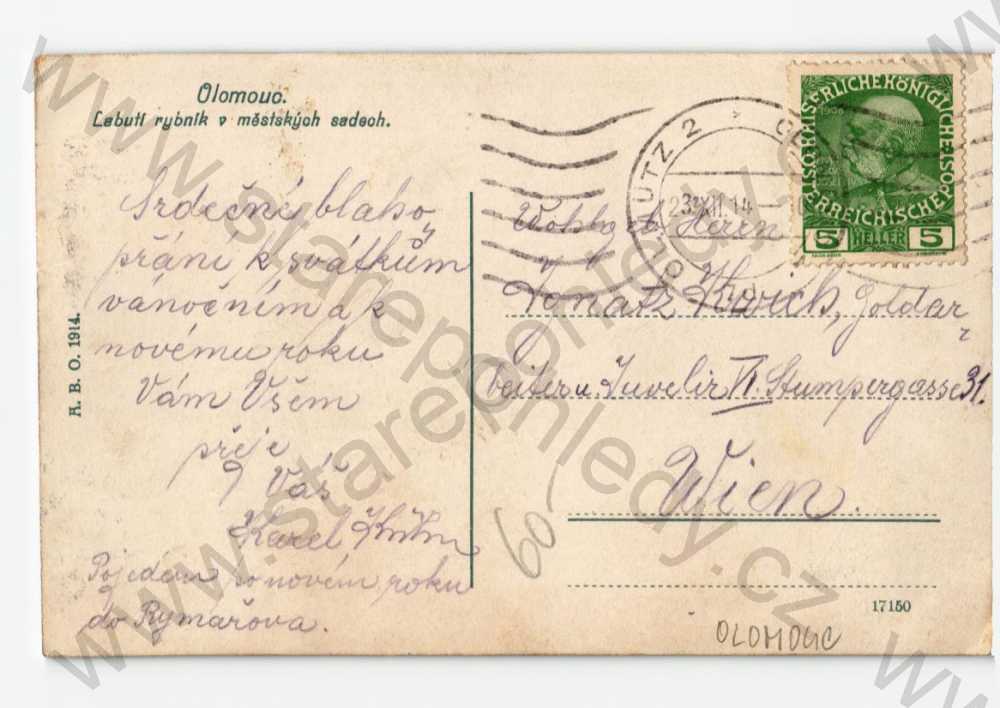 Olomouc.
Labutí rybník v městských sadech.
Srdečné blaho
přání k svátkům
vánočním a k
novému roku
Vám Všem
přeje
Váš
Karel
Pojedem po novém roku
do Rymařova.
A. B. O. 1914.
OLMÜTZ 2
23.XII.14
KAISERLICHE KÖNIGLICHE
ÖSTERREICHISCHE POST
5 HELLER 5
Wohlgeb. Herrn
Ignatz Kovich, Goldar-
beiter u. Juvelir VI. Stumpergasse 31.
Wien.
60-
17150
OLOMOUC
www.starepohledy.cz